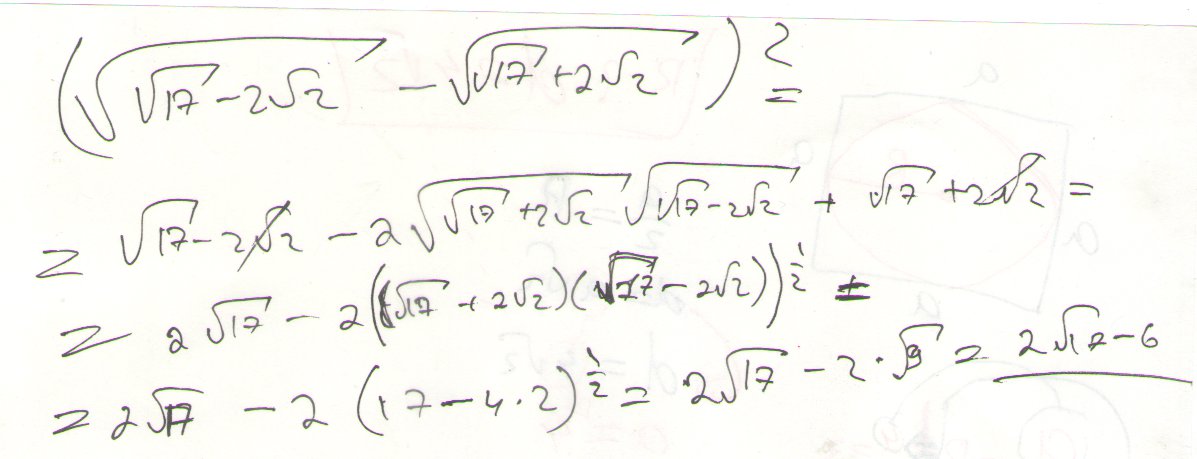 (√(√17 - 2√2) - √(√17 + 2√2))² =
= √17 - 2√2 - 2√(√17 + 2√2) √(√17 - 2√2) + √17 + 2√2 =
= 2√17 - 2((√17 + 2√2)(√17 - 2√2))^½ =
= 2√17 - 2(17 - 4·2)^½ = 2√17 - 2·√9 = 2√17 - 6